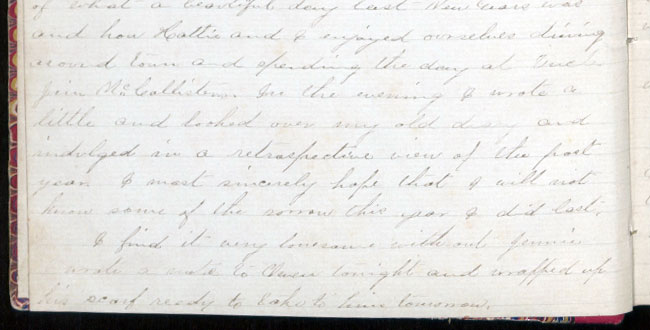 of what a beautiful day last New Years was
and how Hattie and I enjoyed ourselves driving
around town and spending the day at Uncle
Jim McCallisters. In the evening I wrote a
little and looked over my old diary and
indulged in a retrospective view of the past
year. I most sincerely hope that I will not
know some of the sorrow this year I did last.
I find it very lonesome without Jennie
wrote a note to Owen tonight and wrapped up
his scarf ready to take to him tomorrow.